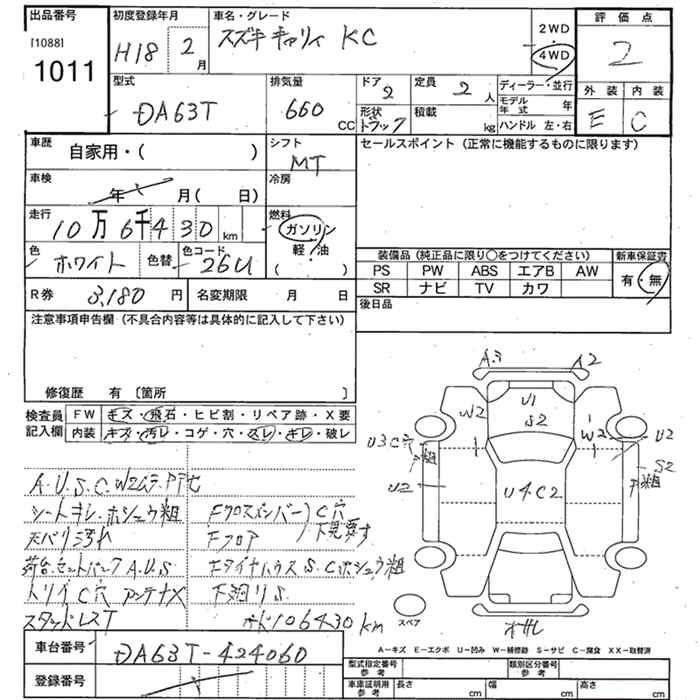 出品番号
[1088]
1011
初度登録年月
H18 2月
車名・グレード
スズキ キャリィ KC
2WD
4WD
評価点
2
外装 内装
E C
型式
DA63T
排気量
660 cc
ドア
2
形状
トラック
定員
2 人
積載
kg
ディーラー・並行
モデル年式 年
ハンドル 左・右
車歴
自家用・( )
車検
年 月( 日)
走行
10万6千430 km
色
ホワイト
色替
色コード
26U
シフト
MT
冷房
燃料
ガソリン
軽・油
( )
セールスポイント (正常に機能するものに限ります)
装備品 (純正品に限り〇をつけてください)
PS PW ABS エアB AW
SR ナビ TV カワ
新車保証書
有・無
後日品
R券 8,180 円
名変期限 月 日
注意事項申告欄 (不具合内容等は具体的に記入して下さい)
修復歴 有 〔箇所 〕
検査員記入欄
FW キズ・飛石・ヒビ割・リペア跡・X要
内装 キズ・汚レ・コゲ・穴・スレ・キレ・破レ
A.U.S.C.W2ムラ.P下七
シートキレ.ホシュウ粗
天バリ汚れ
荷台.セットバック A.U.S
トリイC穴 アンテナX
スタッドレスT
Fクロスメンバー C穴
Fフロア 下見要す
FタイヤハウスS.Cホシュウ粗
下廻りS.
オド106430km
A3 A2
U1
S2
W2
W2
U3C穴
粗
U2
U4C2
U2
S2
粗
オサレ
スペア
A-キズ E-エクボ U-凹み W-補修跡 S-サビ C-腐食 XX-取替済
車台番号 DA63T-424060
登録番号
型式指定番号 参考
類別区分番号 参考
車庫証明用 参考
長さ cm
幅 cm
高さ cm